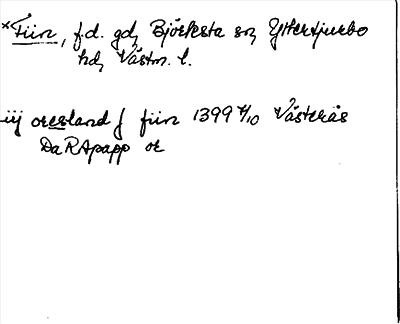 *Fiin, f.d. gd, Björksta sn, Yttertjurbo
hd, Västm. l.
iij oresland j fiin 1399 4/10 Västerås
Da RApapp or